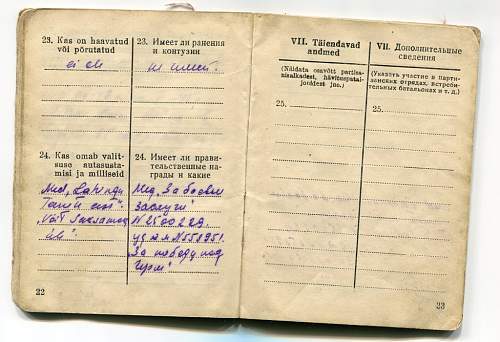 23. Kas on haavatud
või põrutatud
ei ole
23. Имеет ли ранения
и контузии
не имел
24. Kas omab valit-
suse autasusta-
misi ja milliseid
Med. „Lahingu
Teenete eest“.
„Võit Saksamaa
üle“.
24. Имеет ли прави-
тельственные на-
грады и какие
Мед. „За боевые
заслуги“
N2500229.
уд. N558951.
„За победу над
Герм“
22
VII. Täiendavad
andmed
(Näidata osavõtt partisa-
nisalkadest, hävituspatal-
jonidest jne.)
25.
VII. Дополнительные
сведения
(Указать участие в парти-
занских отрядах, истреби-
тельных батальонах и т. д.)
25.
23